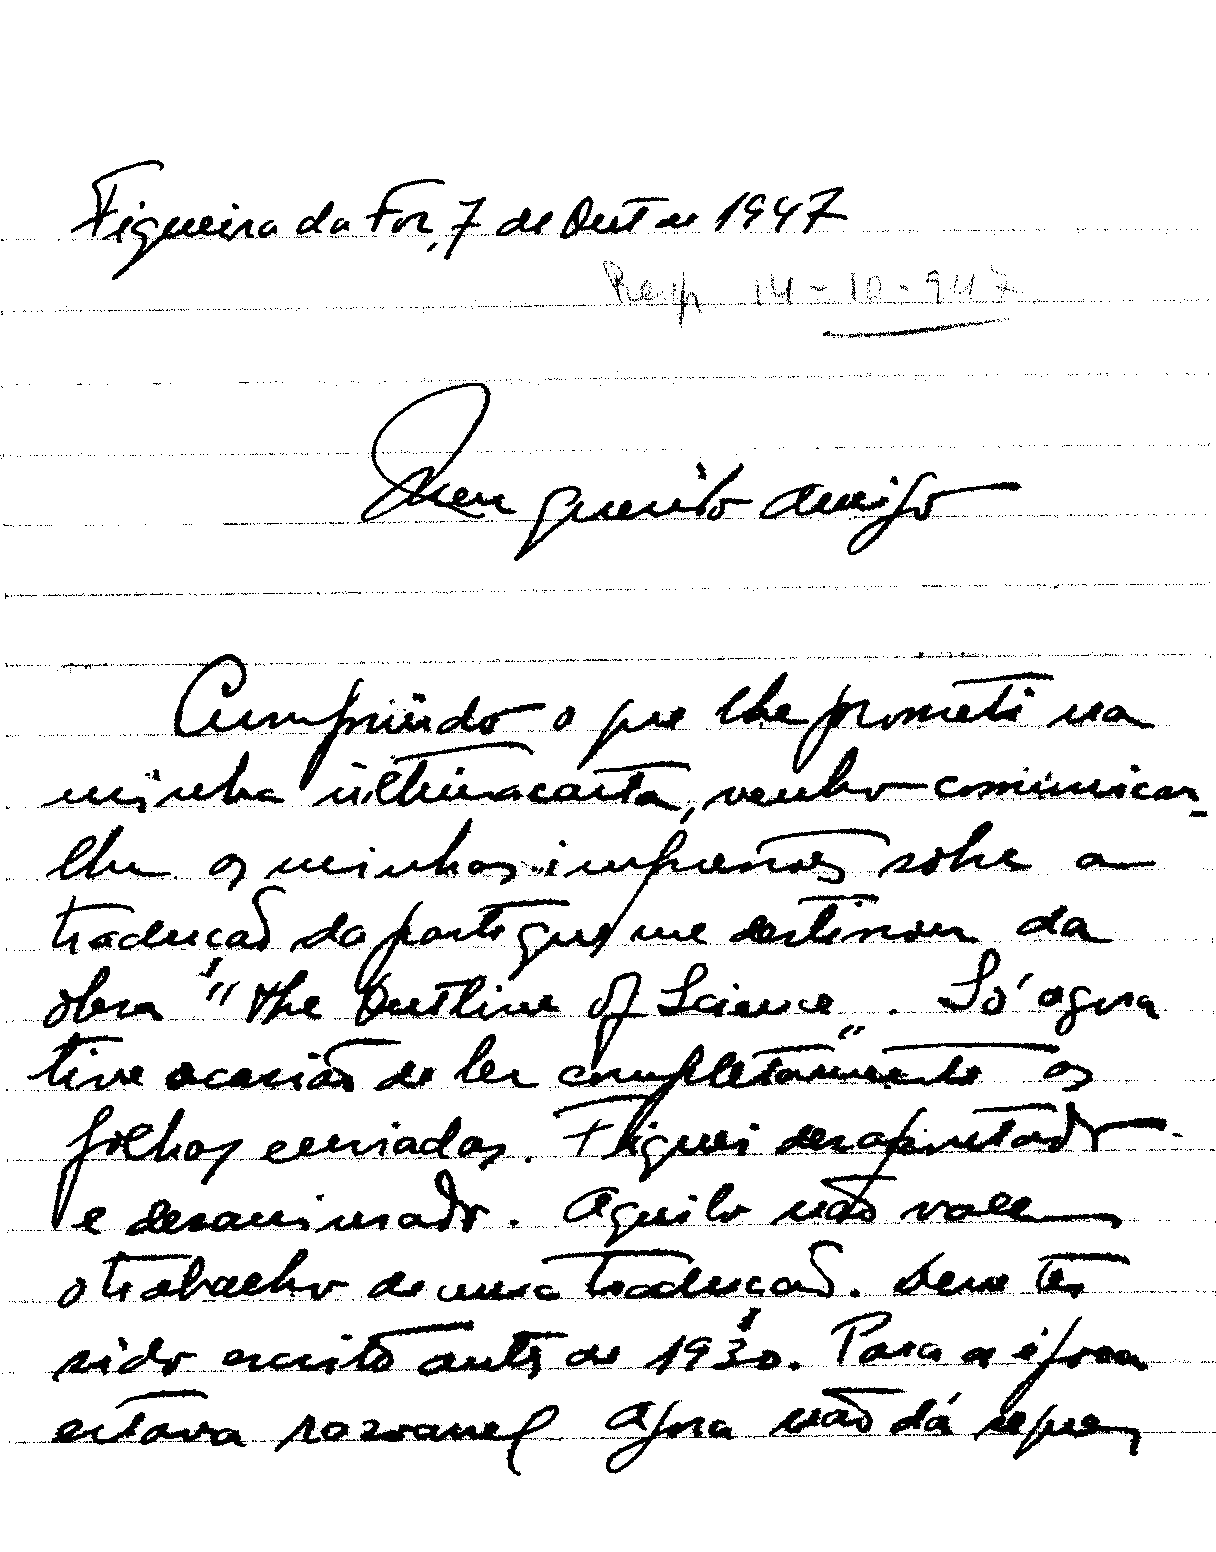 Figueira da Foz, 7 de Out de 1947
Resp 14-10-947
Meu querido amigo
Cumprindo o que lhe prometi na
minha última carta, venho comunicar-
lhe as minhas impressões sobre a
tradução da parte que me destinou da
obra "The Outline of Science". Só agora
tive ocasião de ler completamente as
folhas enviadas. Fiquei desapontado
e desanimado. Aquilo não vale
o trabalho de uma tradução. Deve ter
sido escrito antes de 1930. Para a época
estava razoavel Agora não dá sequer